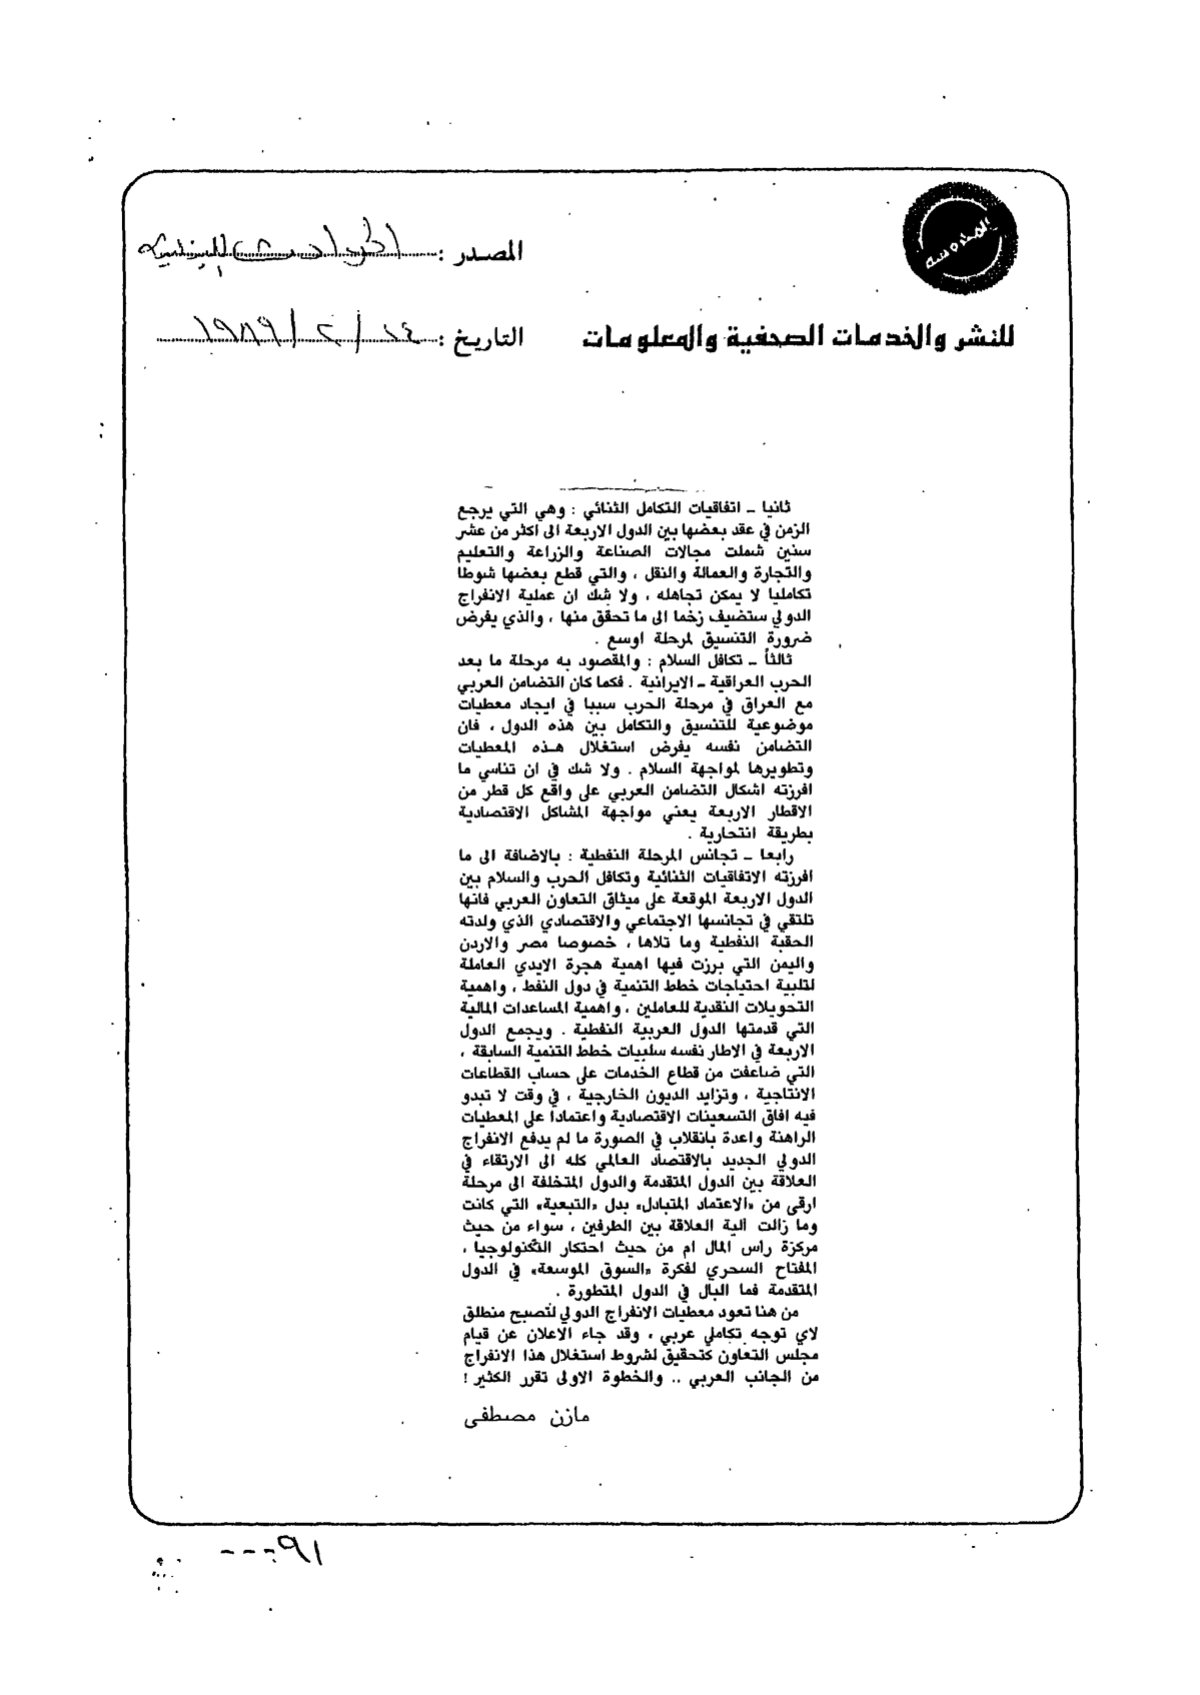 المحروسة
المصدر : الحوادث اللبنانية
للنشر والخدمات الصحفية والمعلومات
التاريخ : ٢٤ / ٢ / ١٩٨٩
ثانيا ــ اتفاقيات التكامل الثنائي : وهي التي يرجع
الزمن في عقد بعضها بين الدول الاربعة الى اكثر من عشر
سنين شملت مجالات الصناعة والزراعة والتعليم
والتجارة والعمالة والنقل ، والتي قطع بعضها شوطا
تكامليا لا يمكن تجاهله ، ولا شك ان عملية الانفراج
الدولي ستضيف زخما الى ما تحقق منها ، والذي يفرض
ضرورة التنسيق لمرحلة اوسع .
ثالثاً ــ تكافل السلام : والمقصود به مرحلة ما بعد
الحرب العراقية ــ الايرانية . فكما كان التضامن العربي
مع العراق في مرحلة الحرب سببا في ايجاد معطيات
موضوعية للتنسيق والتكامل بين هذه الدول ، فان
التضامن نفسه يفرض استغلال هذه المعطيات
وتطويرها لمواجهة السلام . ولا شك في ان تناسي ما
افرزته اشكال التضامن العربي على واقع كل قطر من
الاقطار الاربعة يعني مواجهة المشاكل الاقتصادية
بطريقة انتحارية .
رابعا ــ تجانس المرحلة النفطية : بالاضافة الى ما
افرزته الاتفاقيات الثنائية وتكافل الحرب والسلام بين
الدول الاربعة الموقعة على ميثاق التعاون العربي فانها
تلتقي في تجانسها الاجتماعي والاقتصادي الذي ولدته
الحقبة النفطية وما تلاها ، خصوصا مصر والاردن
واليمن التي برزت فيها اهمية هجرة الايدي العاملة
لتلبية احتياجات خطط التنمية في دول النفط ، واهمية
التحويلات النقدية للعاملين ، واهمية المساعدات المالية
التي قدمتها الدول العربية النفطية . ويجمع الدول
الاربعة في الاطار نفسه سلبيات خطط التنمية السابقة ،
التي ضاعفت من قطاع الخدمات على حساب القطاعات
الانتاجية ، وتزايد الديون الخارجية ، في وقت لا تبدو
فيه افاق التسعينات الاقتصادية واعتمادا على المعطيات
الراهنة واعدة بانقلاب في الصورة ما لم يدفع الانفراج
الدولي الجديد بالاقتصاد العالمي كله الى الارتقاء في
العلاقة بين الدول المتقدمة والدول المتخلفة الى مرحلة
ارقى من «الاعتماد المتبادل» بدل «التبعية» التي كانت
وما زالت آلية العلاقة بين الطرفين ، سواء من حيث
مركزة راس المال ام من حيث احتكار التكنولوجيا ،
المفتاح السحري لفكرة «السوق الموسعة» في الدول
المتقدمة فما البال في الدول المتطورة .
من هنا تعود معطيات الانفراج الدولي لتصبح منطلق
لاي توجه تكاملي عربي ، وقد جاء الاعلان عن قيام
مجلس التعاون كتحقيق لشروط استغلال هذا الانفراج
من الجانب العربي .. والخطوة الاولى تقرر الكثير !
مازن مصطفى